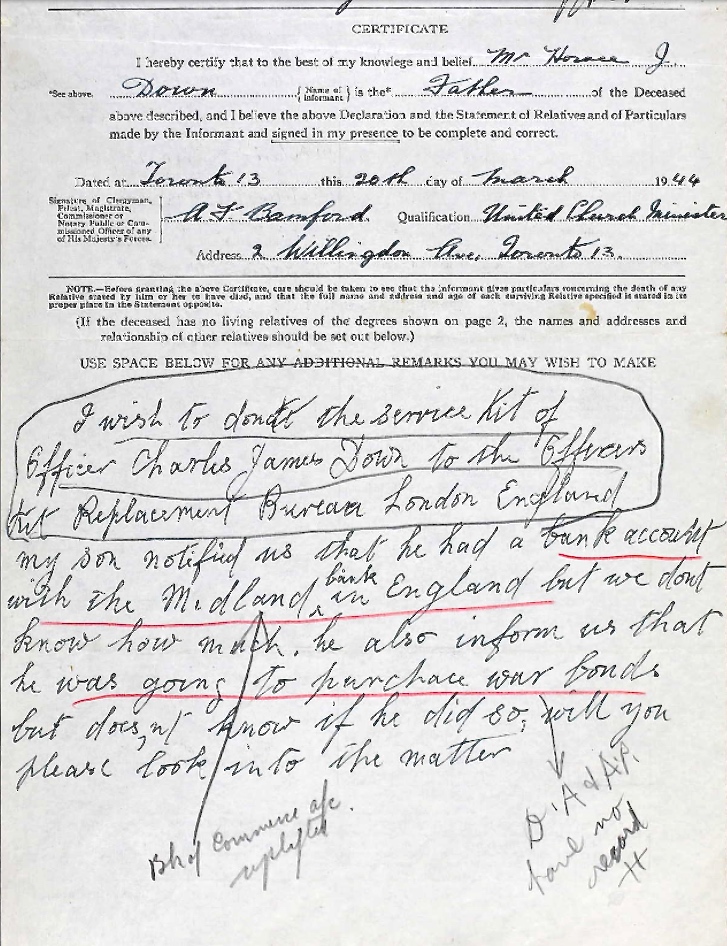 CERTIFICATE
I hereby certify that to the best of my knowlege and belief Mr Horace J.
*See above. Down {Name of Informant} is the* Father of the Deceased
above described, and I believe the above Declaration and the Statement of Relatives and of Particulars
made by the Informant and signed in my presence to be complete and correct.
Dated at Toronto 13 this 20th day of March 1944
Signature of Clergyman, Priest, Magistrate, Commissioner or Notary Public or Commissioned Officer of any of His Majesty's Forces. A F Bamford. Qualification United Church Minister
Address 2 Willingdon Ave, Toronto 13.
NOTE.—Before granting the above Certificate, care should be taken to see that the informant gives particulars concerning the death of any
Relative stated by him or her to have died, and that the full name and address and age of each surviving Relative specified is stated in its
proper place in the Statement opposite.
(If the deceased has no living relatives of the degrees shown on page 2, the names and addresses and
relationship of other relatives should be set out below.)
USE SPACE BELOW FOR ANY ADDITIONAL REMARKS YOU MAY WISH TO MAKE
I wish to donate the service Kit of
Officer Charles James Down to the Officers
Kit Replacement Bureau London England
my son notified us that he had a bank account
with the Midland bank in England but we dont
know how much. he also inform us that
he was going to purchace war bonds
but does,nt know if he did so, will you
please look into the matter
Bk of Commerce a/c
uplifted.
D.A & A.P.
have no
record